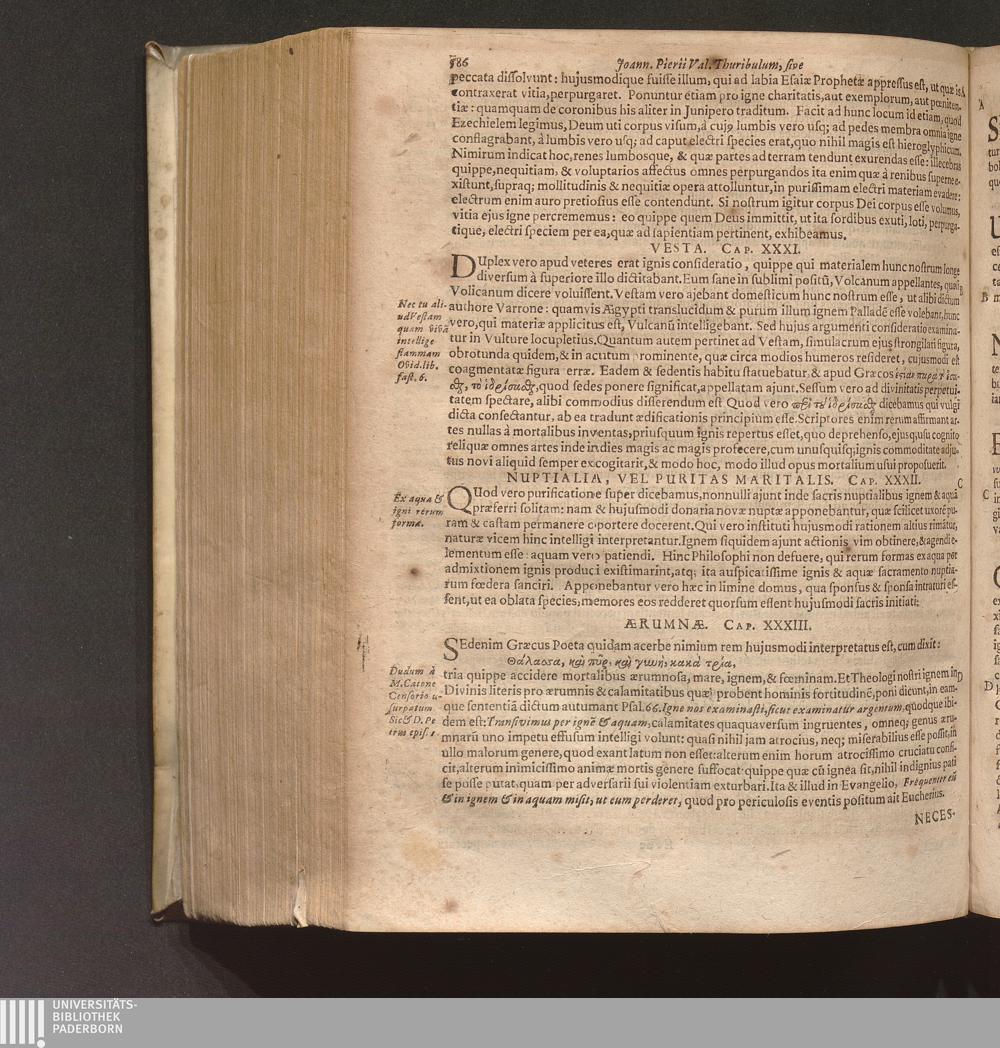 586 Joann. Pierii Val. Thuribulum, sive
peccata dissolvunt: hujusmodique fuisse illum, qui ad labia Esaiæ Prophetæ appressus est, ut quæ is A
contraxerat vitia, perpurgaret. Ponuntur etiam pro igne charitatis, aut exemplorum, aut pœniten-
tiæ: quamquam de coronibus his aliter in Junipero traditum. Facit ad hunc locum id etiam, quod
Ezechielem legimus, Deum uti corpus visum, à cujꝰ lumbis vero usq; ad pedes membra omnia igne
conflagrabant, à lumbis vero usq; ad caput electri species erat, quo nihil magis est hieroglyphicum.
Nimirum indicat hoc, renes lumbosque, & quæ partes ad terram tendunt exurendas esse: illecebras
quippe, nequitiam, & voluptarios affectus omnes perpurgandos ita enim quæ à renibus superne e-
xistunt, supraq; mollitudinis & nequitiæ opera attolluntur, in purissimam electri materiam evadere:
electrum enim auro pretiosius esse contendunt. Si nostrum igitur corpus Dei corpus esse volumus,
vitia ejus igne percrememus: eo quippe quem Deus immittit, ut ita sordibus exuti, loti, perpurga-
tique, electri speciem per ea, quæ ad sapientiam pertinent, exhibeamus.
VESTA. CAP. XXXI.
DUplex vero apud veteres erat ignis consideratio, quippe qui materialem hunc nostrum longe
diversum à superiore illo dictitabant. Eum sane in sublimi positũ, Volcanum appellantes, quasi
Volicanum dicere voluissent. Vestam vero ajebant domesticum hunc nostrum esse, ut alibi dictum B
authore Varrone: quamvis Ægypti translucidum & purum illum ignem Palladẽ esse volebant, hunc
vero, qui materiæ applicitus est, Vulcanũ intelligebant. Sed hujus argumenti consideratio examina-
tur in Vulture locupletius. Quantum autem pertinet ad Vestam, simulacrum ejus strongilari figura,
obrotunda quidem, & in acutum prominente, quæ circa modios humeros resideret, cujusmodi est
coagmentatæ figura terræ. Eadem & sedentis habitu statuebatur, & apud Græcos
quod sedes ponere significat, appellatam ajunt. Sessum vero ad divinitatis perpetui-
tatem spectare, alibi commodius disserendum est Quod vero dicebamus qui vulgi
dicta consectantur, ab ea tradunt ædificationis principium esse. Scriptores enim rerum affirmant ar-
tes nullas à mortalibus inventas, priusquum ignis repertus esset, quo deprehenso, ejusq; usu cognito
reliquæ omnes artes inde indies magis ac magis profecere, cum unusquisq; ignis commoditate adju-
tus novi aliquid semper excogitarit, & modo hoc, modo illud opus mortalium usui proposuerit.
Nec tu ali-
ud Vestam
quam vivã
intellige
flammam
Ovid. lib.
fast. 6.
NUPTIALIA, VEL PURITAS MARITALIS. CAP. XXXII.
QUod vero purificatione super dicebamus, nonnulli ajunt inde sacris nuptialibus ignem & aquã C
præferri solitam: nam & hujusmodi donaria novæ nuptæ apponebantur, quæ scilicet uxorẽ pu-
ram & castam permanere oportere docerent. Qui vero instituti hujusmodi rationem altius rimãtur,
naturæ vicem hinc intelligi interpretantur. Ignem siquidem ajunt actionis vim obtinere, & agendi e-
lementum esse: aquam vero patiendi. Hinc Philosophi non defuere, qui rerum formas ex aqua per
admixtionem ignis produci existimarint, atq; ita auspicatissime ignis & aquæ sacramento nuptia-
rum fœdera sanciri. Apponebantur vero hæc in limine domus, qua sponsus & sponsa intraturi es-
sent, ut ea oblata species, memores eos redderet quorsum essent hujusmodi sacris initiati:
Ex aqua &
igni rerum
formæ.
ÆRUMNÆ. CAP. XXXIII.
SEdenim Græcus Poeta quidam acerbe nimium rem hujusmodi interpretatus est, cum dixit:
Θάλασσα, καὶ πῦρ, καὶ γυνὴ, κακὰ τρία,
tria quippe accidere mortalibus ærumnosa, mare, ignem, & fœminam. Et Theologi nostri ignem in D
Divinis literis pro ærumnis & calamitatibus quæ probent hominis fortitudinẽ, poni dicunt, in eam-
que sententiã dictum autumant Psal. 66. Igne nos examinasti, sicut examinatur argentum, quodque ibi-
dem est: Transivimus per ignẽ & aquam, calamitates quaquaversum ingruentes, omneq; genus æru-
mnarũ uno impetu effusum intelligi volunt: quasi nihil jam atrocius, neq; miserabilius esse possit, in
ullo malorum genere, quod exantlatum non esset: alterum enim horum atrocissimo cruciatu confi-
cit, alterum inimicissimo animæ mortis genere suffocat quippe quæ cũ ignea sit, nihil indignius pati
se posse putat, quam per adversarii sui violentiam exturbari. Ita & illud in Evangelio, Frequenter eũ
& in ignem & in aquam misit, ut eum perderet, quod pro periculosis eventis positum ait Eucherius.
Dudum à
M. Catone
Censorio u-
surpatum
Sic & D. Pe
trus epis. 1
NECES-
UNIVERSITÄTS-
BIBLIOTHEK
PADERBORN